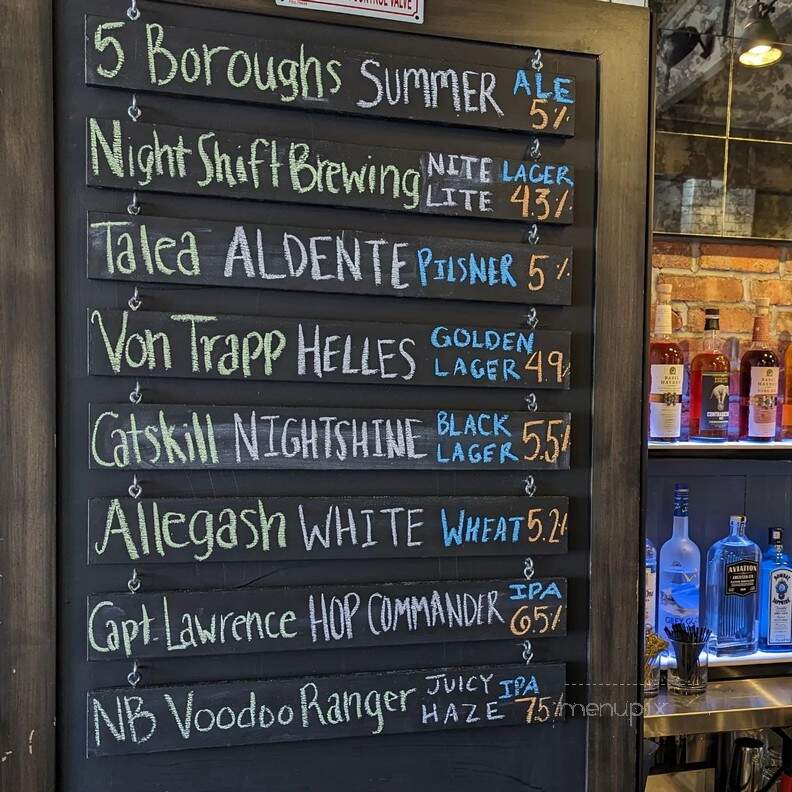 CONTROL VALVE
5 Boroughs SUMMER ALE 5%
Night Shift Brewing NITE LITE LAGER 4.3%
Talea ALDENTE PILSNER 5%
Von Trapp HELLES GOLDEN LAGER 4.9%
Catskill NIGHTSHINE BLACK LAGER 5.5%
Allegash WHITE WHEAT 5.2%
Capt Lawrence HOP COMMANDER IPA 6.5%
NB Voodoo Ranger JUICY HAZE IPA 7.5%
BASIL HAYDEN
AVIATION
GREY GOOSE
BOMBAY SAPPHIRE
menupix